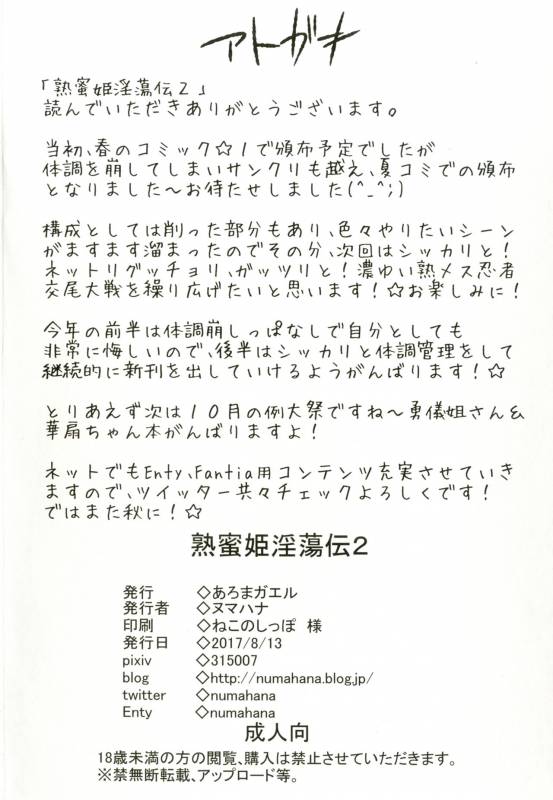 アトガキ
「熟蜜姫淫蕩伝２」
読んでいただきありがとうございます。
当初、春のコミック☆１で頒布予定でしたが
体調を崩してしまいサンクリも越え、夏コミでの頒布
となりました～お待たせしました(^_^;)
構成としては削った部分もあり、色々やりたいシーン
がますます溜まったのでその分、次回はシッカリと！
ネットリグッチョリ、ガッツリと！濃ゆい熟メス忍者
交尾大戦を繰り広げたいと思います！☆お楽しみに！
今年の前半は体調崩しっぱなしで自分としても
非常に悔しいので、後半はシッカリと体調管理をして
継続的に新刊を出していけるようがんばります！☆
とりあえず次は１０月の例大祭ですね～勇儀姐さん＆
華扇ちゃん本がんばりますよ！
ネットでもEnty、Fantia用コンテンツ充実させていき
ますので、ツイッター共々チェックよろしくです！
ではまた秋に！☆
熟蜜姫淫蕩伝２
発行 ◇あろまガエル
発行者 ◇ヌマハナ
印刷 ◇ねこのしっぽ 様
発行日 ◇2017/8/13
pixiv ◇315007
blog ◇http://numahana.blog.jp/
twitter ◇numahana
Enty ◇numahana
成人向
18歳未満の方の閲覧、購入は禁止させていただきます。
※禁無断転載、アップロード等。